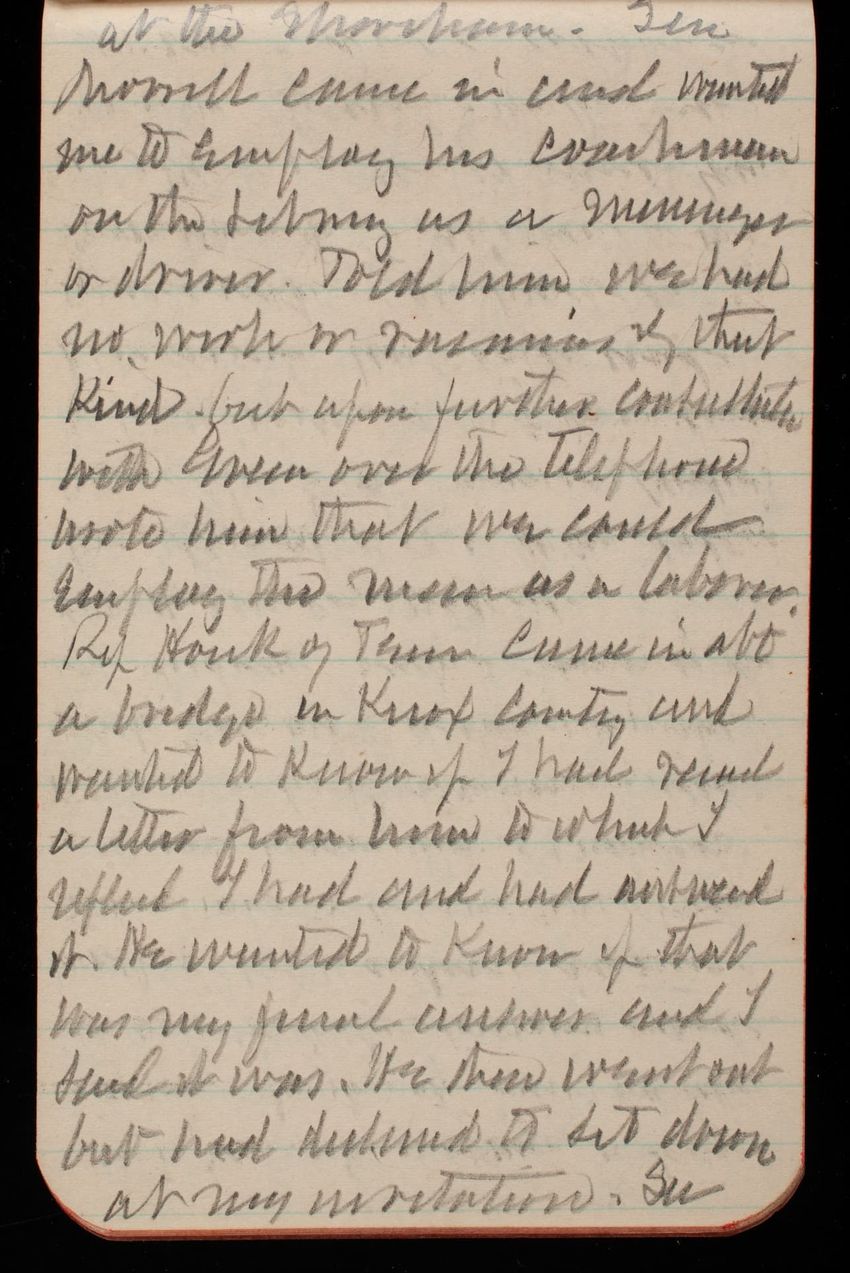 at the Shoreham. Sen
Morrill came in and wanted
me to employ his coachman
on the Library as a messenger
or driver. Told him we had
no work or vacancies of that
Kind. but upon further consultation
with Green over the telephone
wrote him that we could
employ the man as a laborer.
Rep Houk of Tenn came in abt
a bridge in Knox County and
wanted to Know if I had read
a letter from him to which I
replied I had and had answered
it. He wanted to Know if that
was my final answer and I
said it was. He then went out
but had declined to sit down
at my invitation. Sen